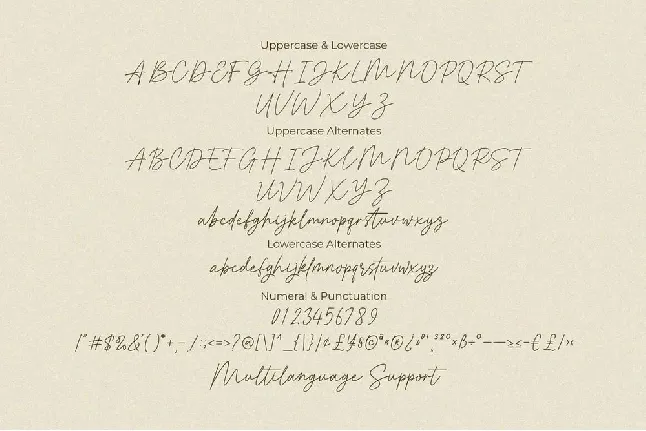 Uppercase & Lowercase
ABCDEFGHIJKLMNOPQRST
UVWXYZ
Uppercase Alternates
ABCDEFGHIJKLMNOPQRST
UVWXYZ
abcdefghijklmnopqrstuvwxyz
Lowercase Alternates
abcdefghijklmnopqrstuvwxyz
Numeral & Punctuation
0123456789
!"#$%&'()*+,-./:;<=>?@[\]^_{|}
Multilanguage Support